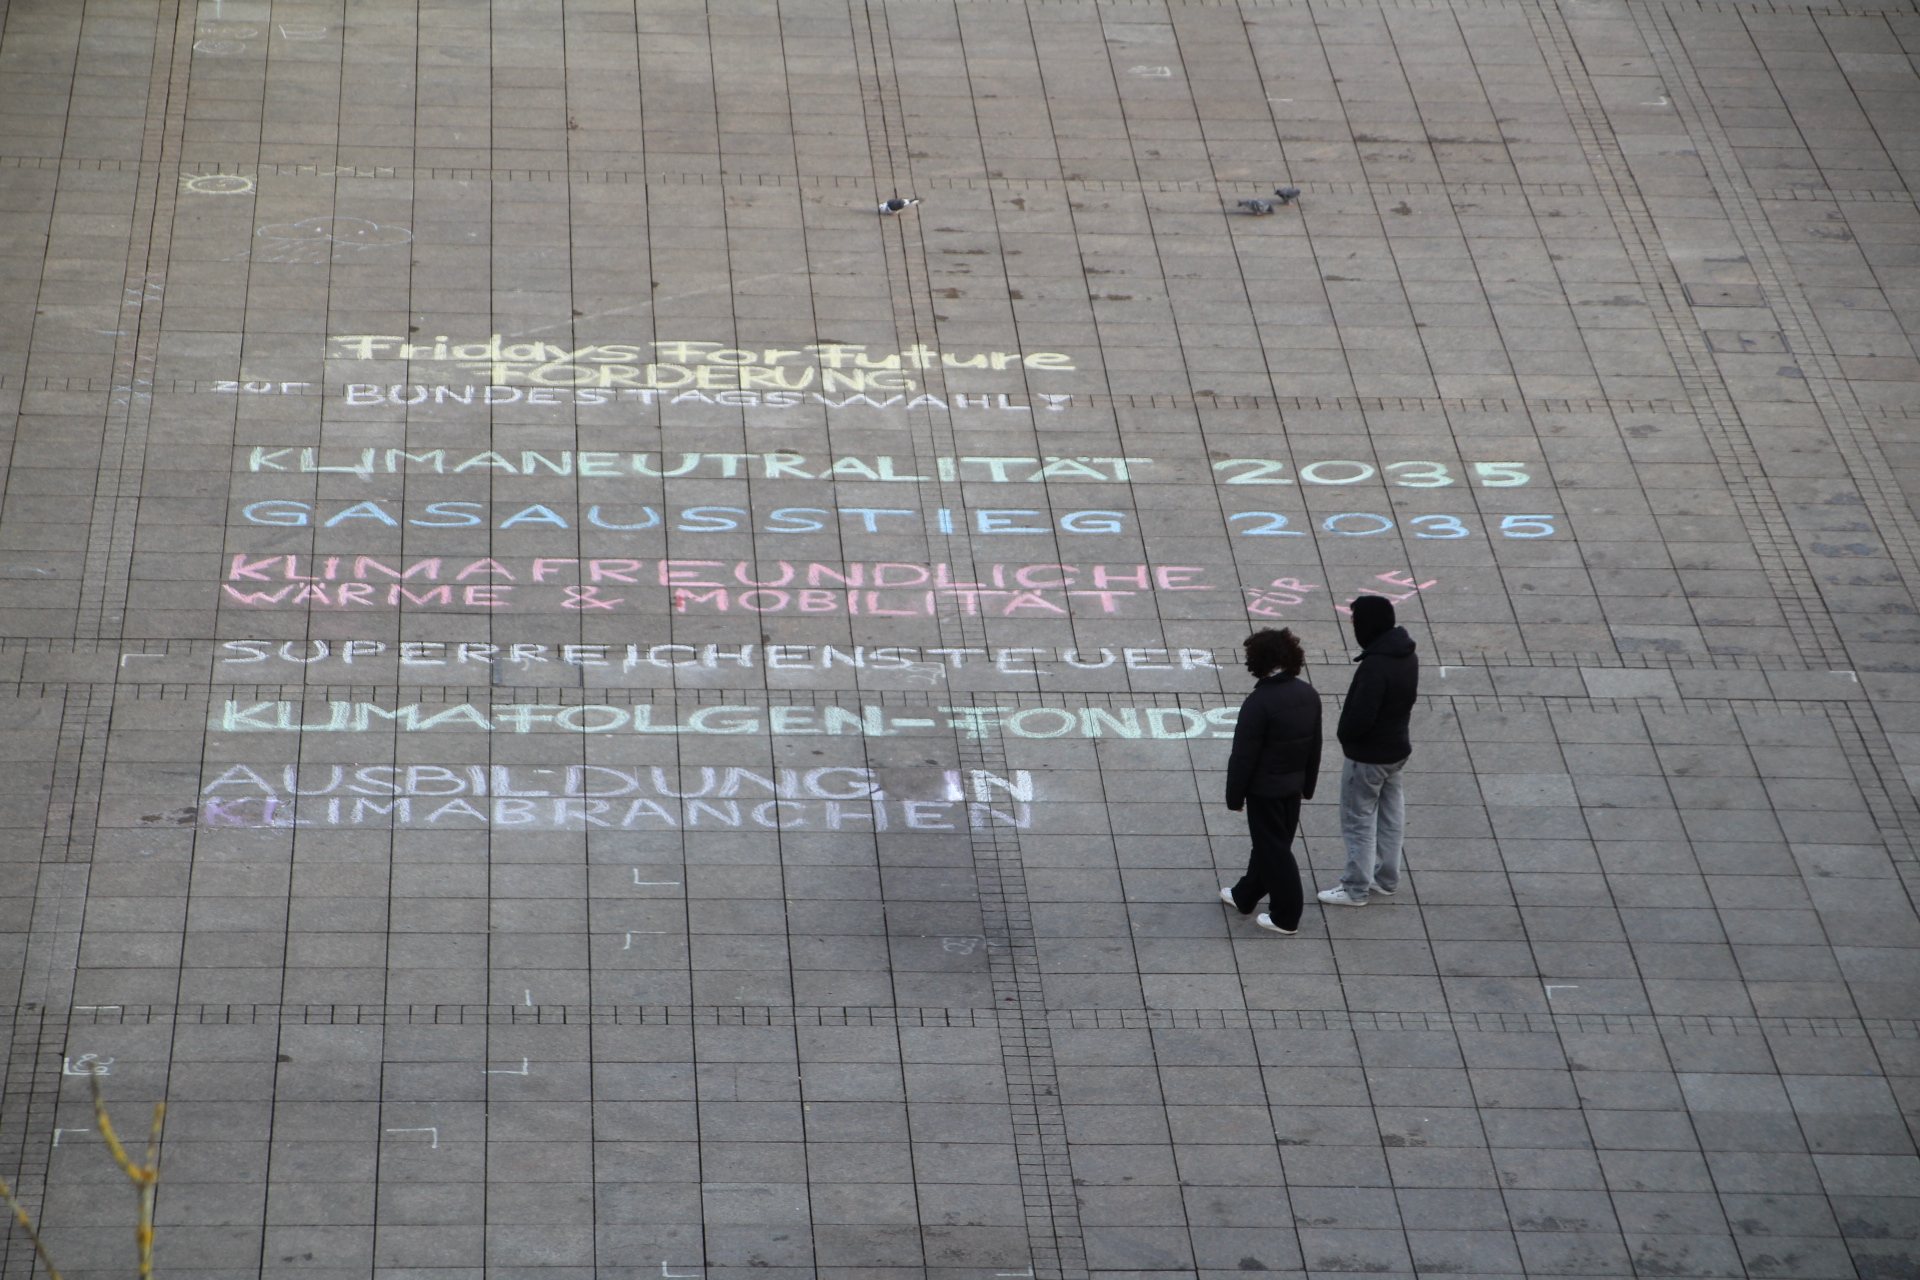 Fridays For Future
FORDERUNG
zur BUNDESTAGSWAHL!
KLIMANEUTRALITÄT 2035
GASAUSSTIEG 2035
KLIMAFREUNDLICHE
WÄRME & MOBILITÄT FÜR
SUPERREICHENSTEUER
KLIMAFOLGEN-FONDS
AUSBILDUNG IN
KLIMABRANCHEN